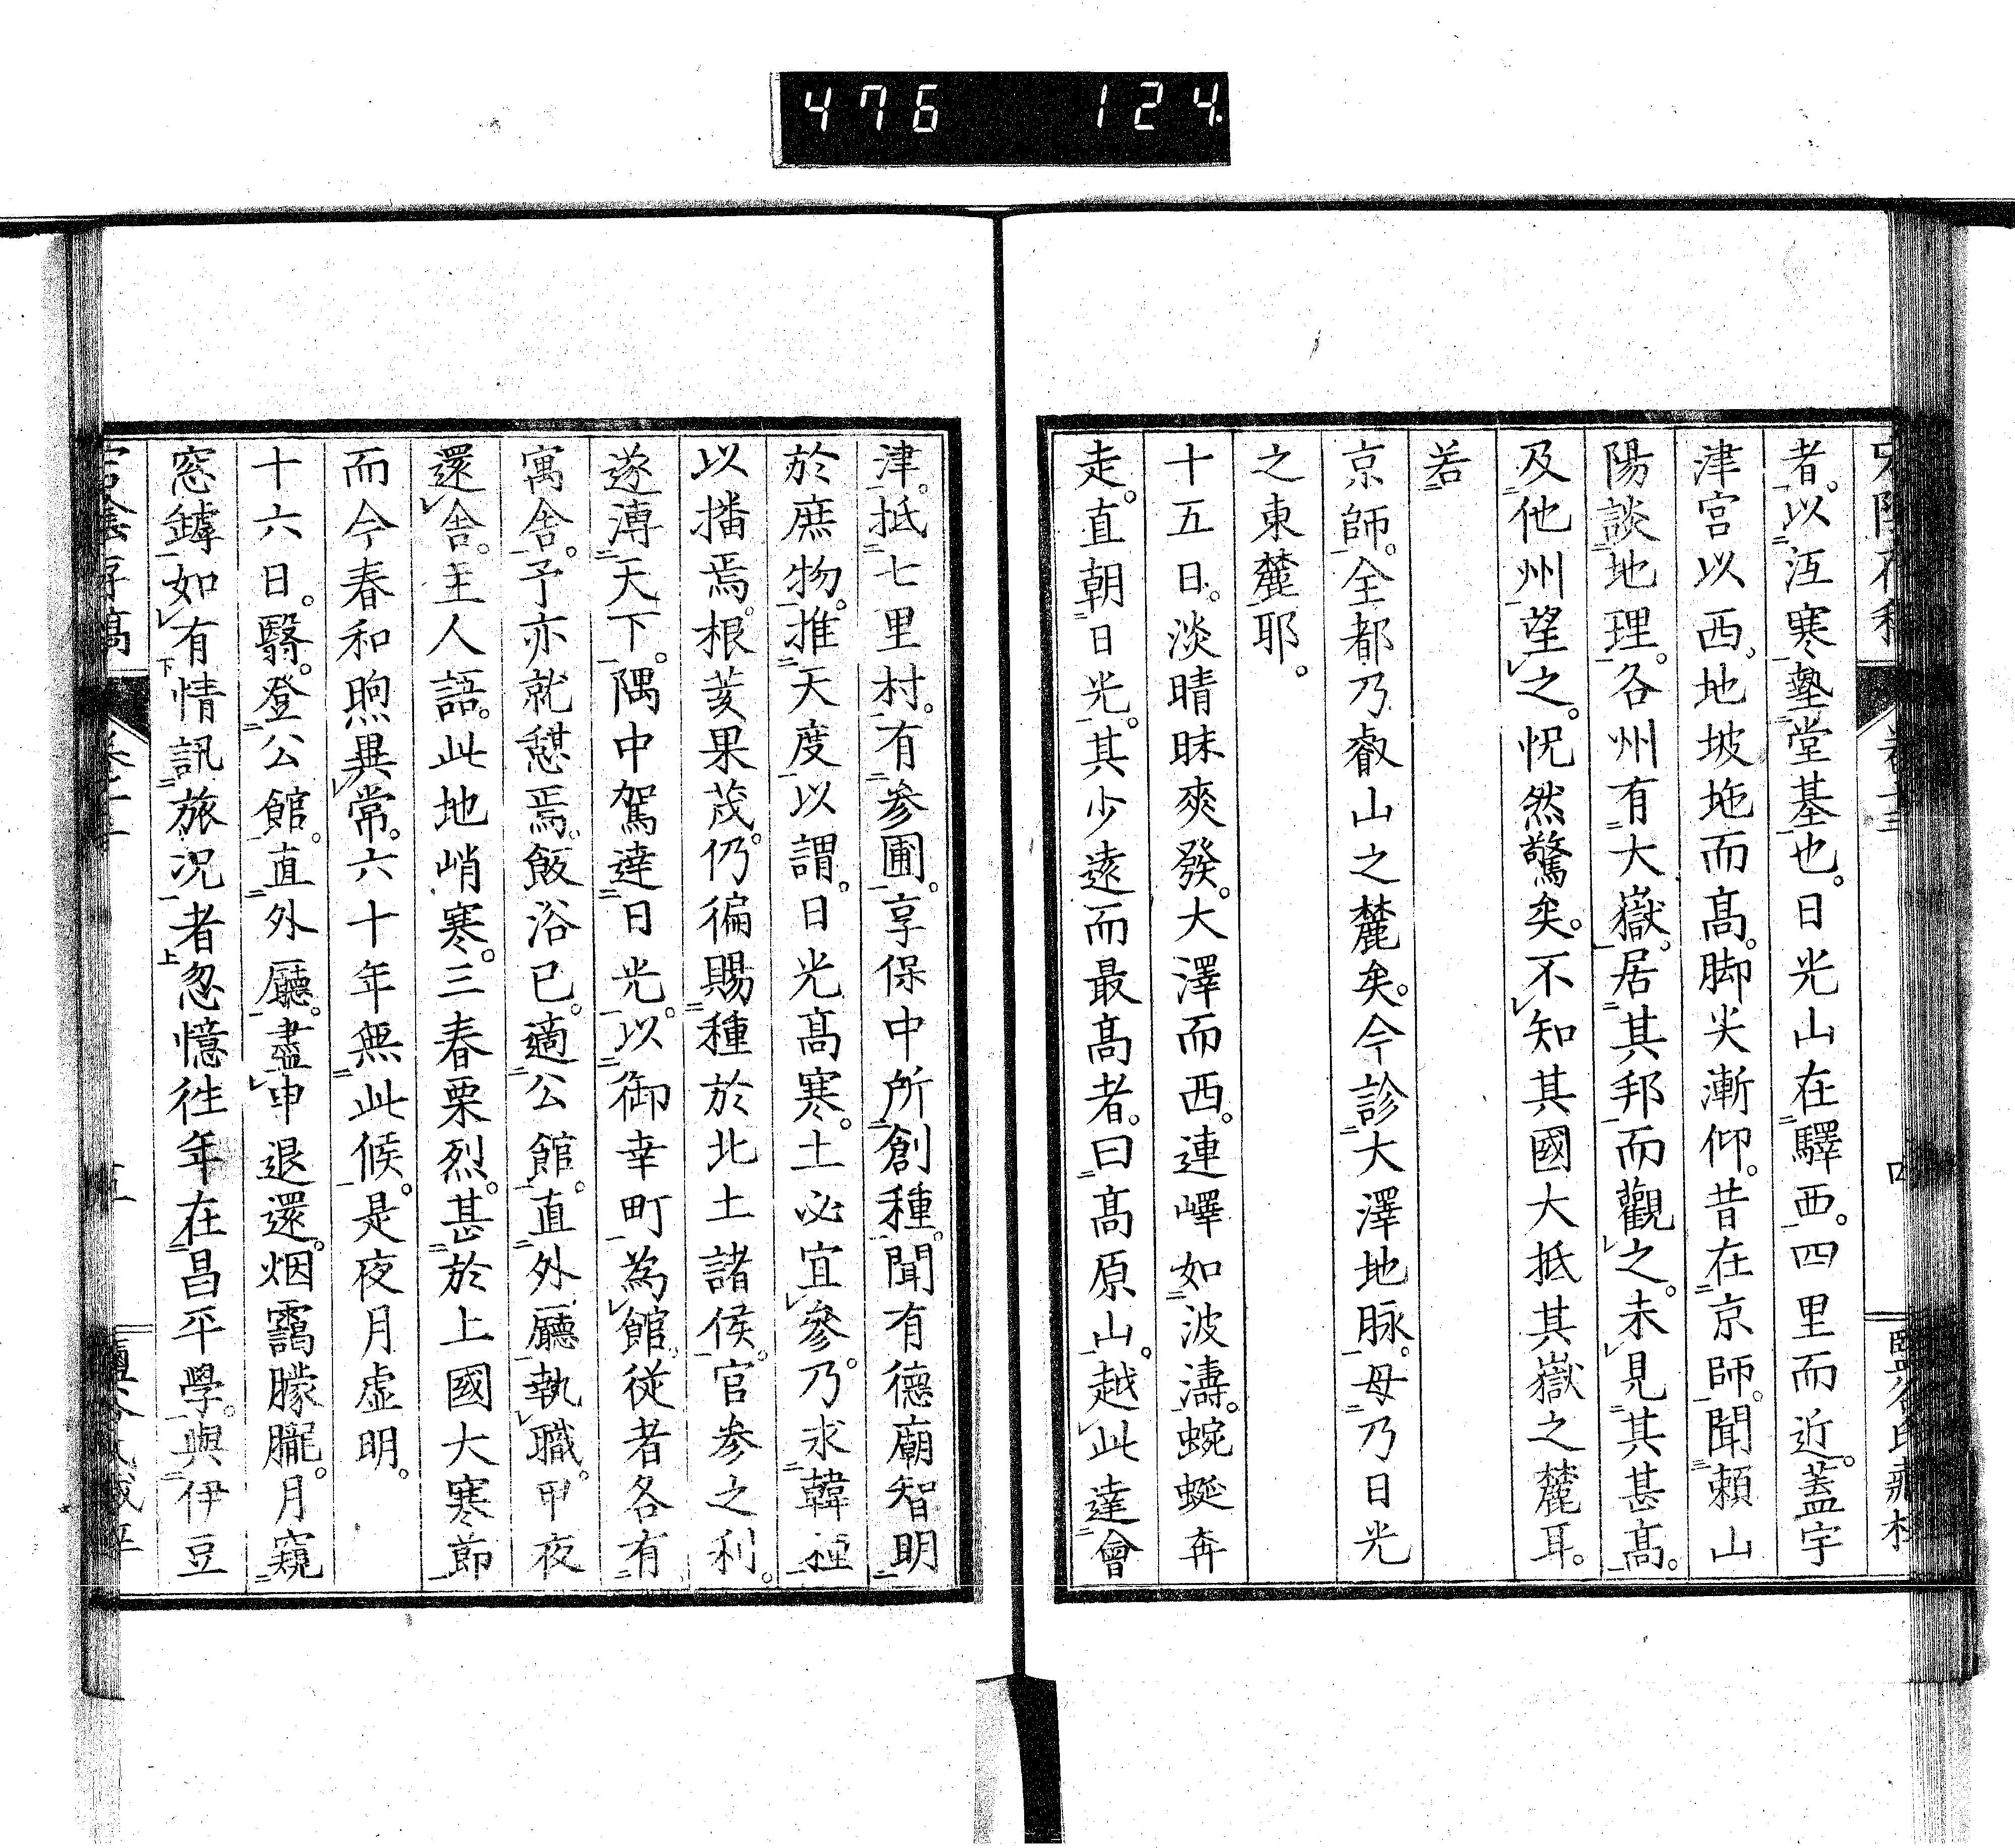 476 124
者。以沍寒墊堂基也。日光山在驛西。四里而近。蓋宇
津宮以西、地坡迤而高。脚尖漸仰。昔在京師。聞賴山
陽談地理。各州有大嶽、居其邦而觀之。未見其甚高。
及他州望之。怳然驚矣。不知其國大抵其嶽之麓耳。
若
京師。全都乃叡山之麓矣。今診大澤地脉。毋乃日光
之東麓耶。
十五日。淡晴昧爽發。大澤而西。連嶧如波濤。蜿蜒奔
走。直朝日光。其少遠而最高者。曰高原山。越此達會
津。抵七里村。有參圃。享保中所創種。聞有德廟智明
於庶物。推天度以謂。日光高寒。土必宜參。乃求韓種
以播焉。根荄果茂。仍徧賜種於北土諸侯。官参之利。
遂溥天下。隅中駕達日光。以御幸町為館。従者各有
寓舍。予亦就憇焉。飯浴已。適公館。直外廳執職。甲夜
還舍。主人語。此地峭寒。三春栗烈。甚於上國大寒節
而今春和煦異常。六十年無此候。是夜月虚明。
十六日。翳。登公館。直外廳。盡申退還。烟靄朦朧。月窺
窓罅如有情訊旅况者忽憶往年在昌平學。與伊豆